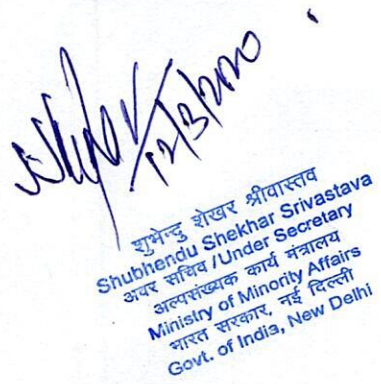 12/3/2020
शुभेन्दु शेखर श्रीवास्तव
Shubhendu Shekhar Srivastava
अवर सचिव /Under Secretary
अल्पसंख्यक कार्य मंत्रालय
Ministry of Minority Affairs
भारत सरकार, नई दिल्ली
Govt. of India, New Delhi